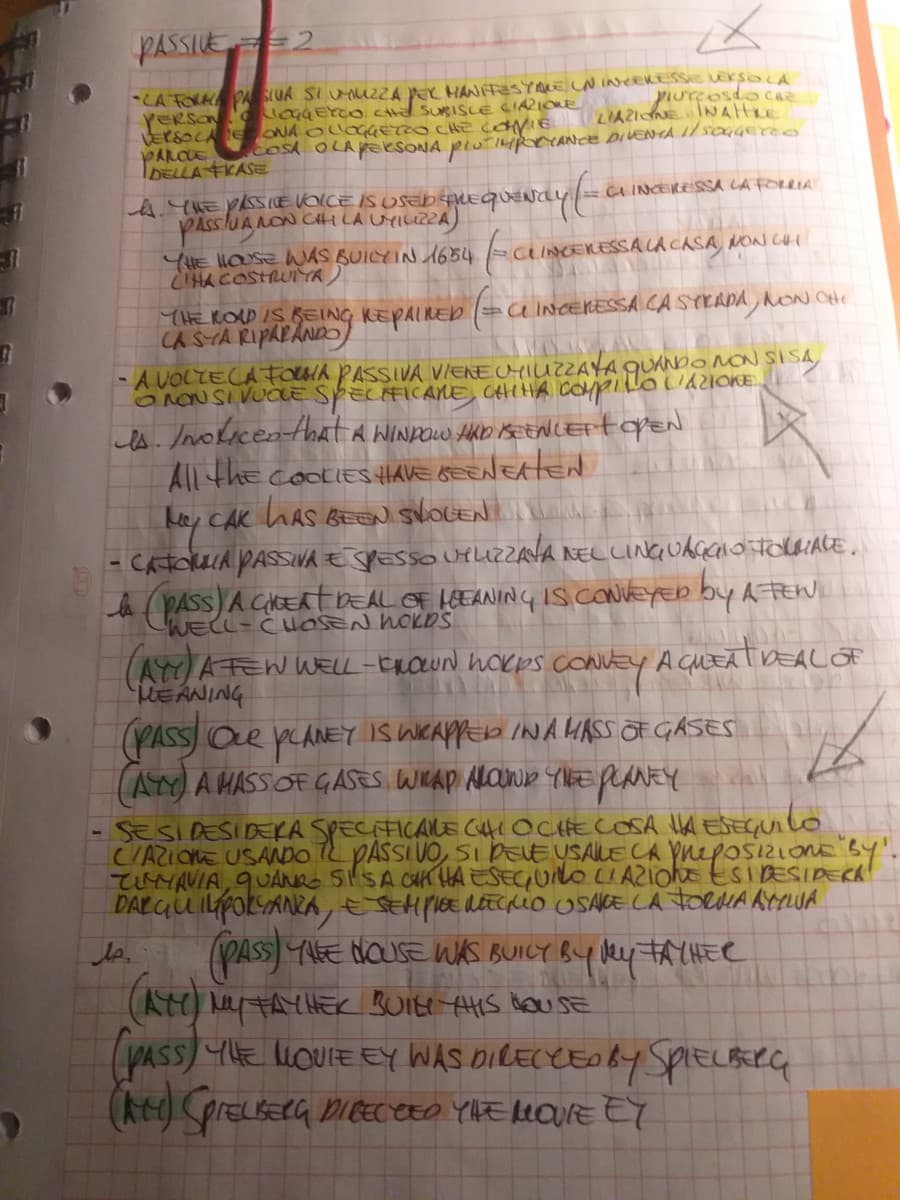 PASSIVE 2
- LA FORMA PASSIVA SI UTILIZZA PER MANIFESTARE UN INTERESSE VERSO LA
PERSONA O L'OGGETTO CHE SUBISCE L'AZIONE PIUTTOSTO CHE
VERSO LA PERSONA O L'OGGETTO CHE COMPIE L'AZIONE. IN ALTRE
PAROLE COSA O LA PERSONA PIU' IMPORTANTE DIVENTA IL SOGGETTO
DELLA FRASE
Es. THE PASSIVE VOICE IS USED FREQUENTLY (= CI INTERESSA LA FORMA
PASSIVA, NON CHI LA UTILIZZA)
THE HOUSE WAS BUILT IN 1654 (= CI INTERESSA LA CASA, NON CHI
L'HA COSTRUITA)
THE ROAD IS BEING REPAIRED (= CI INTERESSA LA STRADA, NON CHI
LA STA RIPARANDO)
- A VOLTE LA FORMA PASSIVA VIENE UTILIZZATA QUANDO NON SI SA,
O NON SI VUOLE SPECIFICARE, CHI HA COMPIUTO L'AZIONE.
es. I noticed that A WINDOW HAD BEEN LEFT OPEN
All the COOKIES HAVE BEEN EATEN
My CAR HAS BEEN STOLEN
- LA FORMA PASSIVA E' SPESSO UTILIZZATA NEL LINGUAGGIO FORMALE.
es (PASS) A GREAT DEAL OF MEANING IS CONVEYED by A FEW
WELL-CHOSEN WORDS
(ATT) A FEW WELL-KNOWN WORDS CONVEY A GREAT DEAL OF
MEANING
(PASS) OUR PLANET IS WRAPPED IN A MASS OF GASES
(ATT) A MASS OF GASES WRAP AROUND THE PLANET
- SE SI DESIDERA SPECIFICARE CHI O CHE COSA HA ESEGUITO
L'AZIONE USANDO IL PASSIVO, SI DEVE USARE LA PREPOSIZIONE "BY".
TUTTAVIA, QUANDO SI SA CHI HA ESEGUITO L'AZIONE E SI DESIDERA
DARGLI IMPORTANZA, E' SEMPRE MEGLIO USARE LA FORMA ATTIVA
es. (PASS) THE HOUSE WAS BUILT BY My FATHER
(ATT) My FATHER BUILT THIS HOUSE
(PASS) THE MOVIE ET WAS DIRECTED BY SPIELBERG
(ATT) SPIELBERG DIRECTED THE MOVIE ET